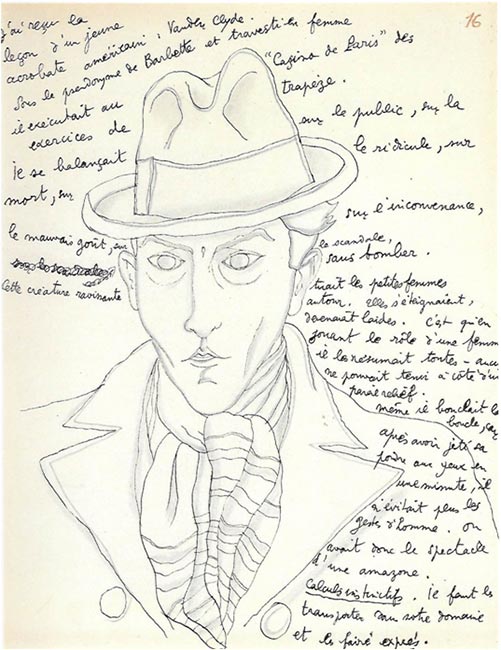 16
J'ai reçu la
leçon d'un jeune
acrobate américain : Vander Clyde.
Sous le pseudonyme de Barbette et travesti en femme
il exécutait au "Casino de Paris" des
exercices de trapèze.
Il se balançait sur le public, sur la
mort, sur le ridicule, sur
le mauvais goût, sur l'inconvenance,
le scandale,
sans tomber.
Cette créature ravissante tuait les petites femmes
autour. Elles s'éteignaient,
devenait laides. C'est qu'en
jouant le rôle d'une femme
il les résumait toutes - aucu
ne pouvait tenir à côté d'un
pareil relief.
même il bouclait la
boucle, car
après avoir jeté sa
poudre aux yeux en
une minute, il
n'évitait plus les
gestes d'homme. On
avait donc le spectacle
d'une amazone.
Calculs instructifs. Il faut les
transporter dans notre domaine
et les faire exprès.